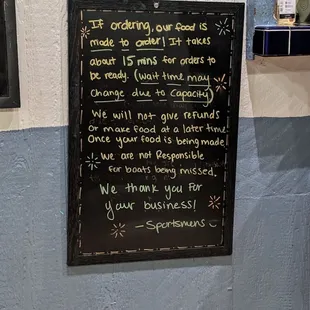 If ordering, our food is
made to order! It takes
about 15 mins for orders to
be ready. (wait time may
change due to capacity)
We will not give refunds
Or make food at a later time
Once your food is being made!
We are not Responsible
for boats being missed.
We thank you For
your business!
- Sportsmens